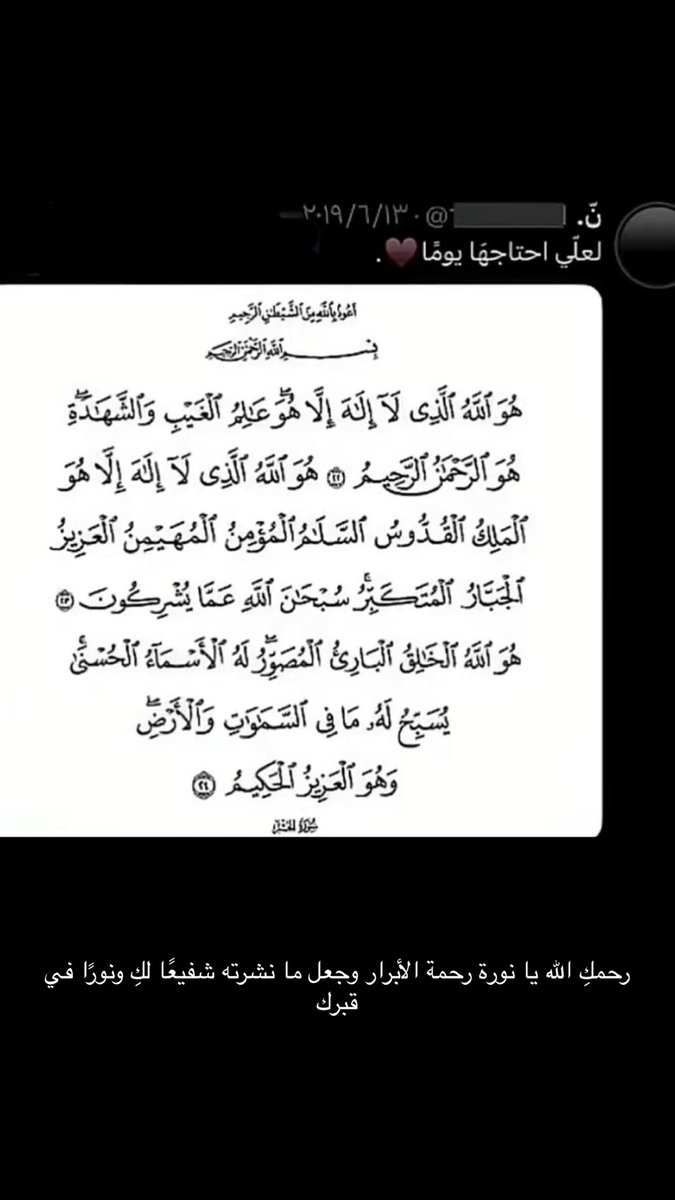 نّ. @ · ٢٠١٩/٦/١٣
لعلّي احتاجهَا يومًا♥️.
أَعُوذُ بِٱللَّهِ مِنَ ٱلشَّيْطَٰنِ ٱلرَّجِيمِ
بِسْمِ ٱللَّهِ ٱلرَّحْمَٰنِ ٱلرَّحِيمِ
هُوَ ٱللَّهُ ٱلَّذِى لَآ إِلَٰهَ إِلَّا هُوَۖ عَٰلِمُ ٱلْغَيْبِ وَٱلشَّهَٰدَةِۖ
هُوَ ٱلرَّحْمَٰنُ ٱلرَّحِيمُ ٢٢ هُوَ ٱللَّهُ ٱلَّذِى لَآ إِلَٰهَ إِلَّا هُوَ
ٱلْمَلِكُ ٱلْقُدُّوسُ ٱلسَّلَٰمُ ٱلْمُؤْمِنُ ٱلْمُهَيْمِنُ ٱلْعَزِيزُ
ٱلْجَبَّارُ ٱلْمُتَكَبِّرُۚ سُبْحَٰنَ ٱللَّهِ عَمَّا يُشْرِكُونَ ٢٣
هُوَ ٱللَّهُ ٱلْخَٰلِقُ ٱلْبَارِئُ ٱلْمُصَوِّرُۖ لَهُ ٱلْأَسْمَآءُ ٱلْحُسْنَىٰۚ
يُسَبِّحُ لَهُۥ مَا فِى ٱلسَّمَٰوَٰتِ وَٱلْأَرْضِۖ
وَهُوَ ٱلْعَزِيزُ ٱلْحَكِيمُ ٢٤
سُورَةُ الحَشْر
رحمكِ الله يا نورة رحمة الأبرار وجعل ما نشرته شفيعًا لكِ ونورًا في
قبرك